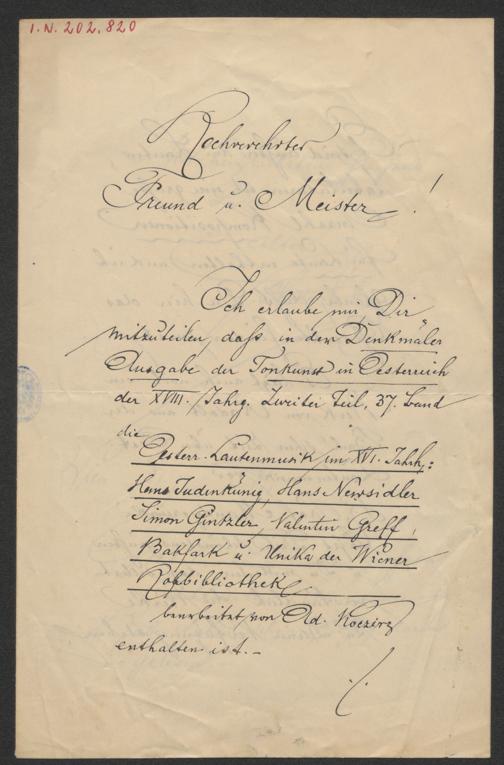 I. N. 202.820
Hochverehrter
Freund u. Meister!
Ich erlaube mir, Dir
mitzuteilen, daſs in den Denkmäler
Ausgabe der Tonkunst in Oesterreich
der XVIII. Jahrg. Zweiter Teil, 37. Band
die
Oesterr. Lautenmusik im XVI. Jahrh:
Hans Judenkünig, Hans Newsidler
Simon Gintzler, Valentin Greff
Bakfark u. Unika der Wiener
Hofbibliothek
bearbeitet von Ad. Koczirz
enthalten ist.–
./.